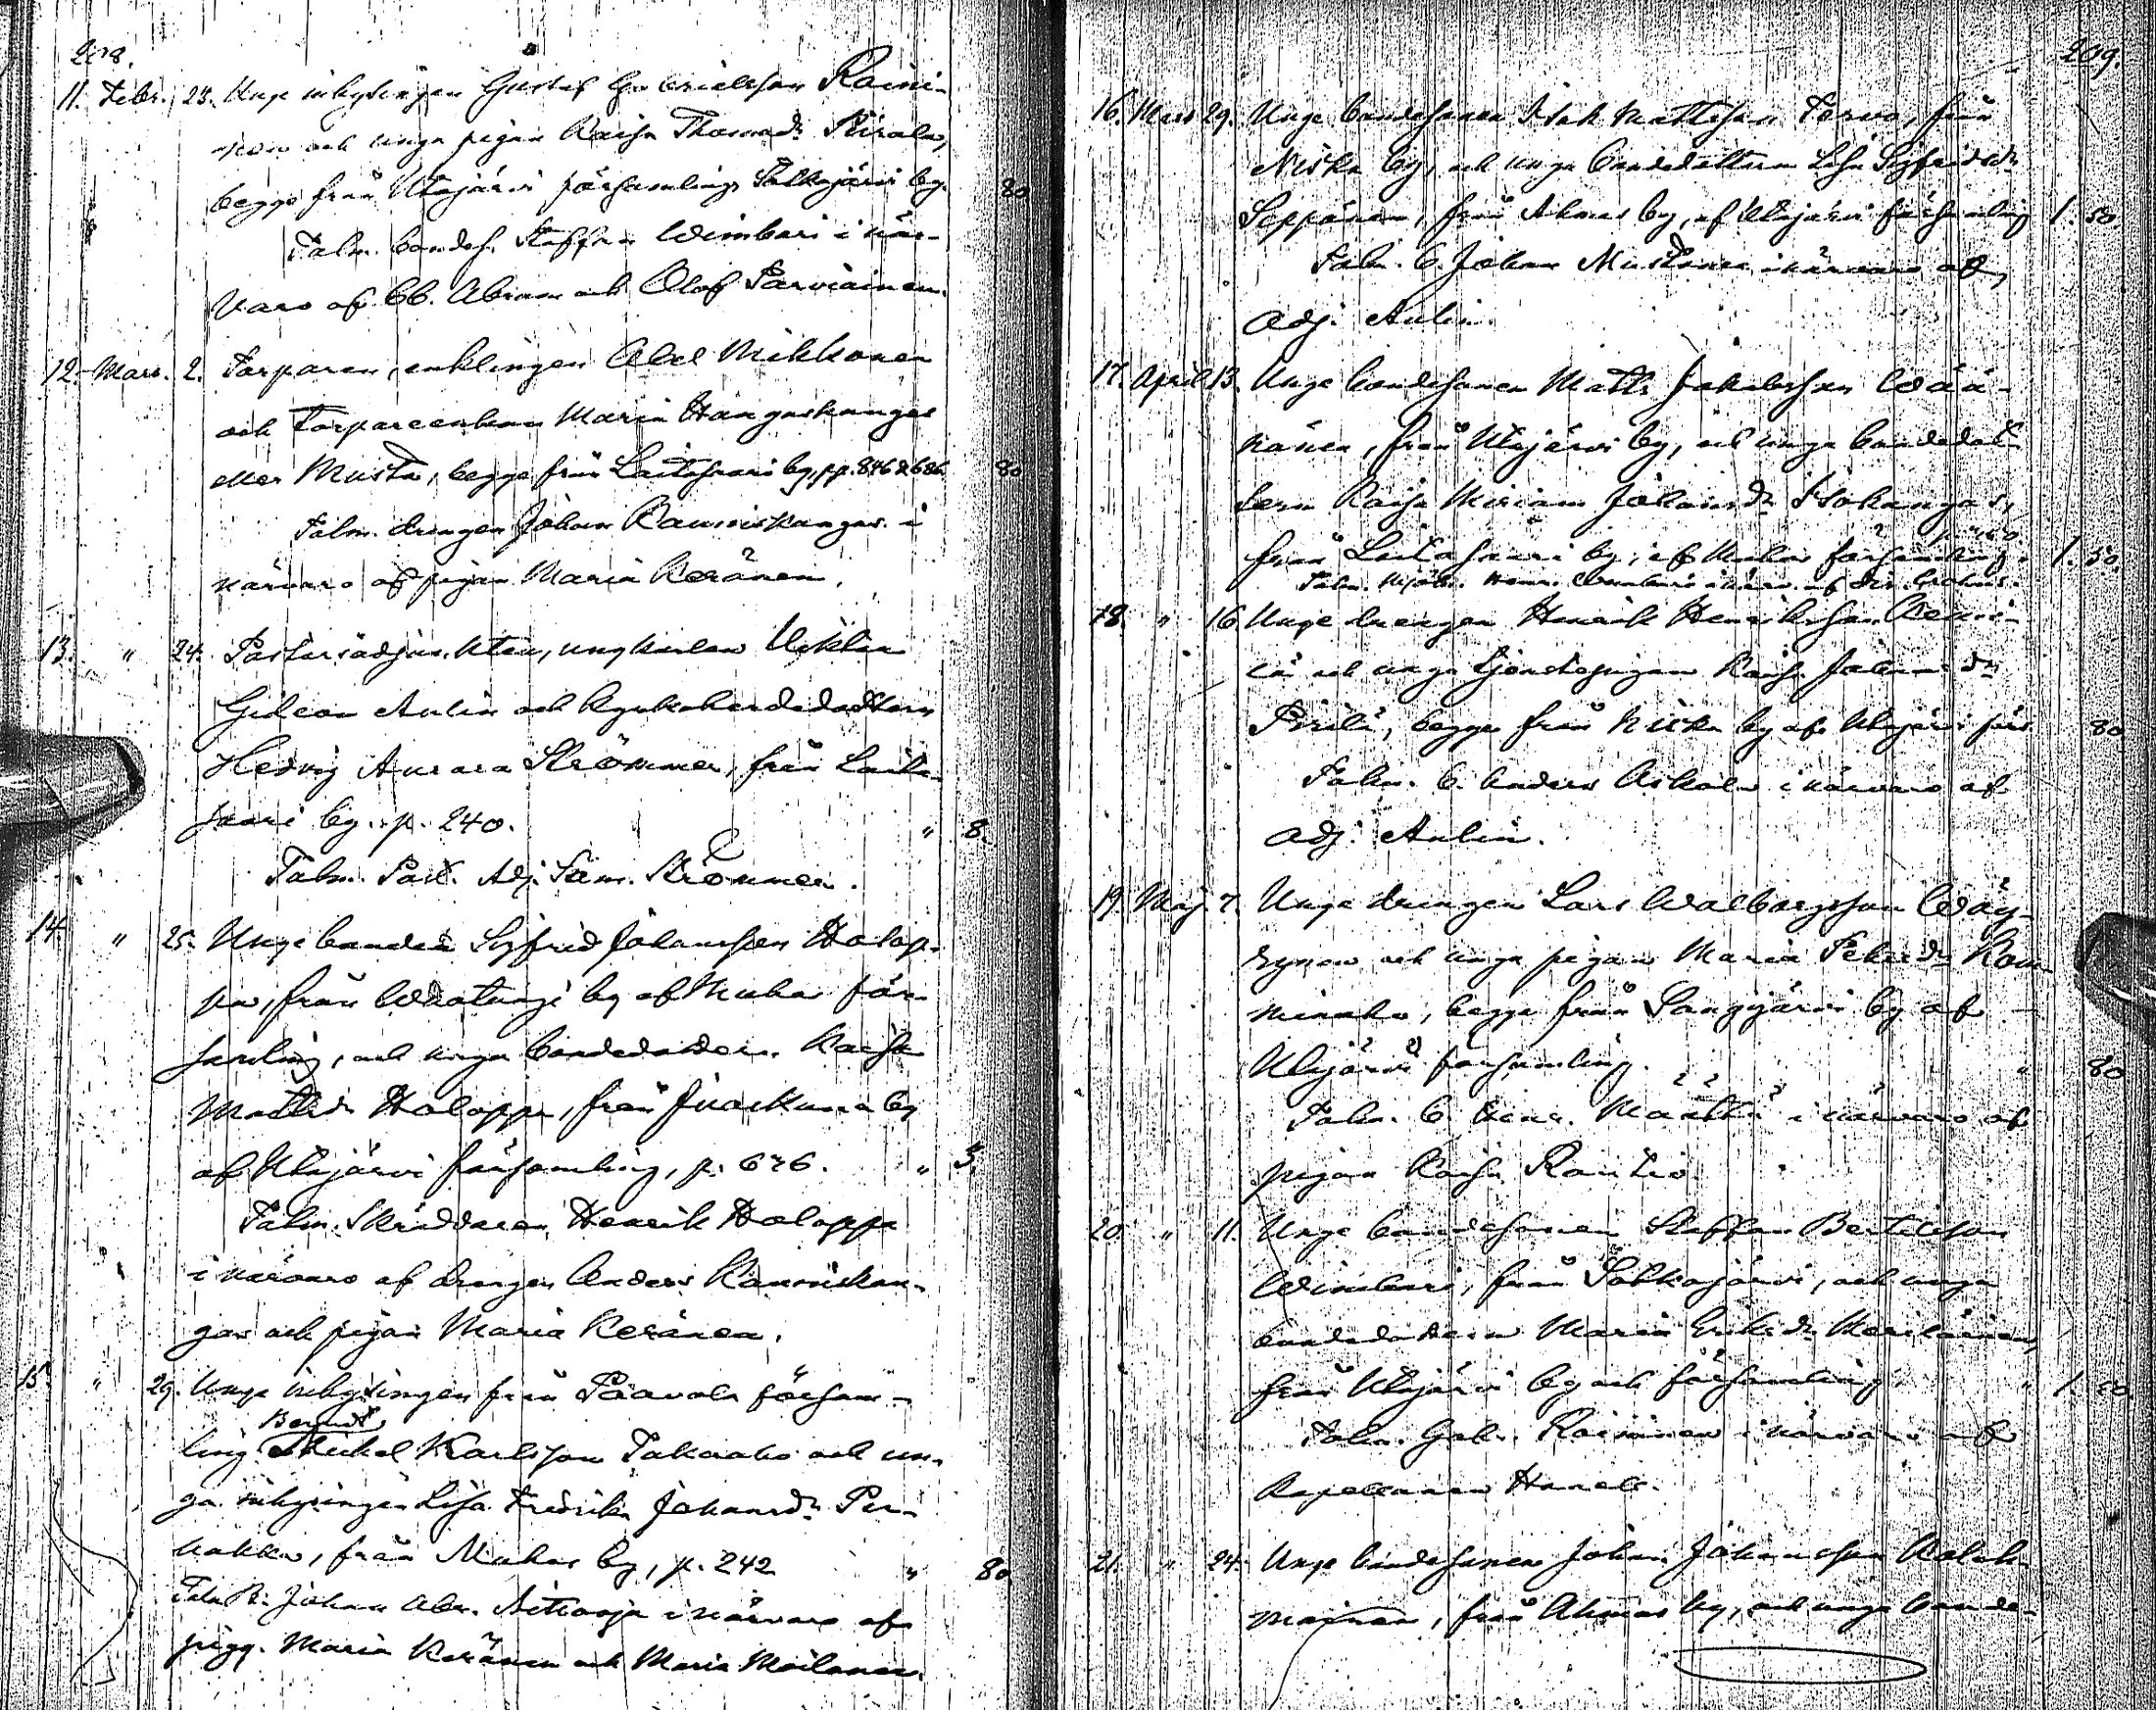 208.
11. Febr. 23. Unge inhysingen Gustaf Gabrielsson Raini-
nen och unga pigan Kaisa Thomasdr
begge från Utajärvi församling Salkojärvi by. 80
Talm. bondes. Staffan Wimbari i när-
varo af bb. Abram och Olof Parviainen.
12. Mars. 2. Torparen, enklingen Abel Mikkonen
och Torpareenkan Maria Hangaskangas
eller Musta, begge från Laitasaari by, pp. 846 & 686. 80
Talm. drengen Johan Kauniskangas i
närvaro af pigan Maria Keränen.
13. " 24. Pastorsadjunkten, ungkarlen Viktor
Gideon Aulin och Kyrkoherdedottern
Hedvig Aurora Strömmer, från Laita-
saari by. p. 240. " 8.
Talm. Past. Adj. Sam. Strömmer.
14. " 25. Unge bonden Sigfrid Johansson Holap-
pa, från by af Muhos för-
samling, och unga bondedottern Kaisa
Mattsdr Holappa, från Juorkuna by
af Utajärvi församling, p. 676. " 3.
Talm. Skräddaren Henrik Holappa
i närvaro af drengen Anders Kauniskan-
gas och pigan Maria Keränen.
15. " 29. Unge inhysingen från Paavola församl-
Berndt
ling Mickel Karlsson Takaaho och un-
ga inhysingen Lisa Fredrika Johansdr Pur-
, från Muhos by, p. 242 " 80.
Talm. Johan Abr. i närvaro af
pigg. Maria Keränen och Maria Moilanen.
209.
16. Mars 29. Unge bondesonen Isak Mattsson Tervo, från
Niska by, och unga bondedottern Lisa Sigfridsdr
Seppänen, från Ahmas by, af Utajärvi församling 1. 50.
Talm. b. Johan Mustonen i närvaro af
adj. Aulin.
17. April 13. Unge bondesonen Matts Jakobsson Wää-
nänen, från Utajärvi by, och unga bondedot-
tern Kaisa Miriam Johansdr Isokangas,
från Laitasaari by, af Muhos församling. 1. 50.
18. " 16. Unge drengen Henrik Henriksson
och unga tjenstepigan Kaisa Johansdr
Pirilä, begge från Niska by af Utajärvi förs. 80
Talm. b. Anders Askola i närvaro af
adj. Aulin.
19. Maj 7. Unge drengen Lars Walborgsson Wäy-
rynen och unga pigan Maria Petersdr Kom-
minaho, begge från Sangijärvi by af
Utajärvi församling. " 80
Talm. b. Henr. Määttä i närvaro af
pigan Kaisa Rautio.
20. " 11. Unge bondesonen Staffan Bertilsson
Wimbari, från Salkojärvi, och unga
bondedottern Maria Eriksdr
från Utajärvi by och församling " 1. 50
Talm. Gabr. Raininen i närvaro af
Kapellanen
21. " 24. Unge bondesonen Johan Johansson Koleh-
mainen, från Ahmas by, och unga bonde-